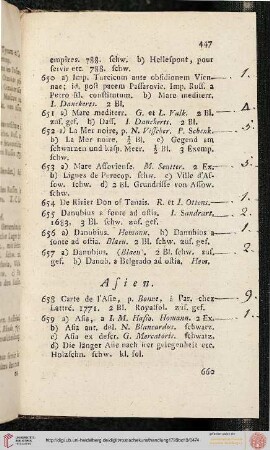 447
empires. 788. schw. b) Hellespont, pour
servir etc. 788. schw.
650 a) Imp. Turcicum ante obsidionem Vien-
nae; id. post pacem Passarovic. Imp. Russ. a
Petro fil. constitutum. b) Mare mediterr.
I. Danckerts. 2 Bl.
651 a) Mare mediterr. G. et L. Valk. 2 Bl.
zus. gef. b) Id. I. Danckerts. 2 Bl.
652 a) La Mer noire, p. N. Visscher. P. Schenk.
b) La Mer noire. ½ Bl. c) Gegend am
schwarzen und kasp. Meer. ½ Bl. 3 Exemp.
schw.
653 a) Mare Assoviense. M. Seutter. 2 Ex.
b) Lignes de Perecop. schw. c) Ville d'As-
sow. schw. d) 2 Bl. Grundrisse von Assow.
schw.
654 De Rivier Don of Tanais. R. et I. Ottens.
655 Danubius a fonte ad ostia. I. Sandrart.
1683. 2 Bl. schw. zus. gef.
656 a) Danubius. Homann. b) Danubius a
fonte ad ostia. Blaeu. 2 Bl. schw. zus. gef.
657 a) Danubius. (Blaeu). 2 Bl. schw. zus.
gef. b) Danub. a Belgrado ad ostia. Hom.
Asien.
658 Carte de l'Asie, p. Bonne, à Par. chez
Lattré. 1771. 2 Bl. Royalfol. zus. gef.
659 a) Asia, a I. M. Hasio. Homann. 2 Ex.
b) Asia ant. del. N. Blancardus. schwarz.
c) Asia ex defer. G. Mercatoris. schwarz.
d) Die länger Asie nach irer gelegenheit etc.
Holzschn. schw. kl. fol.
660